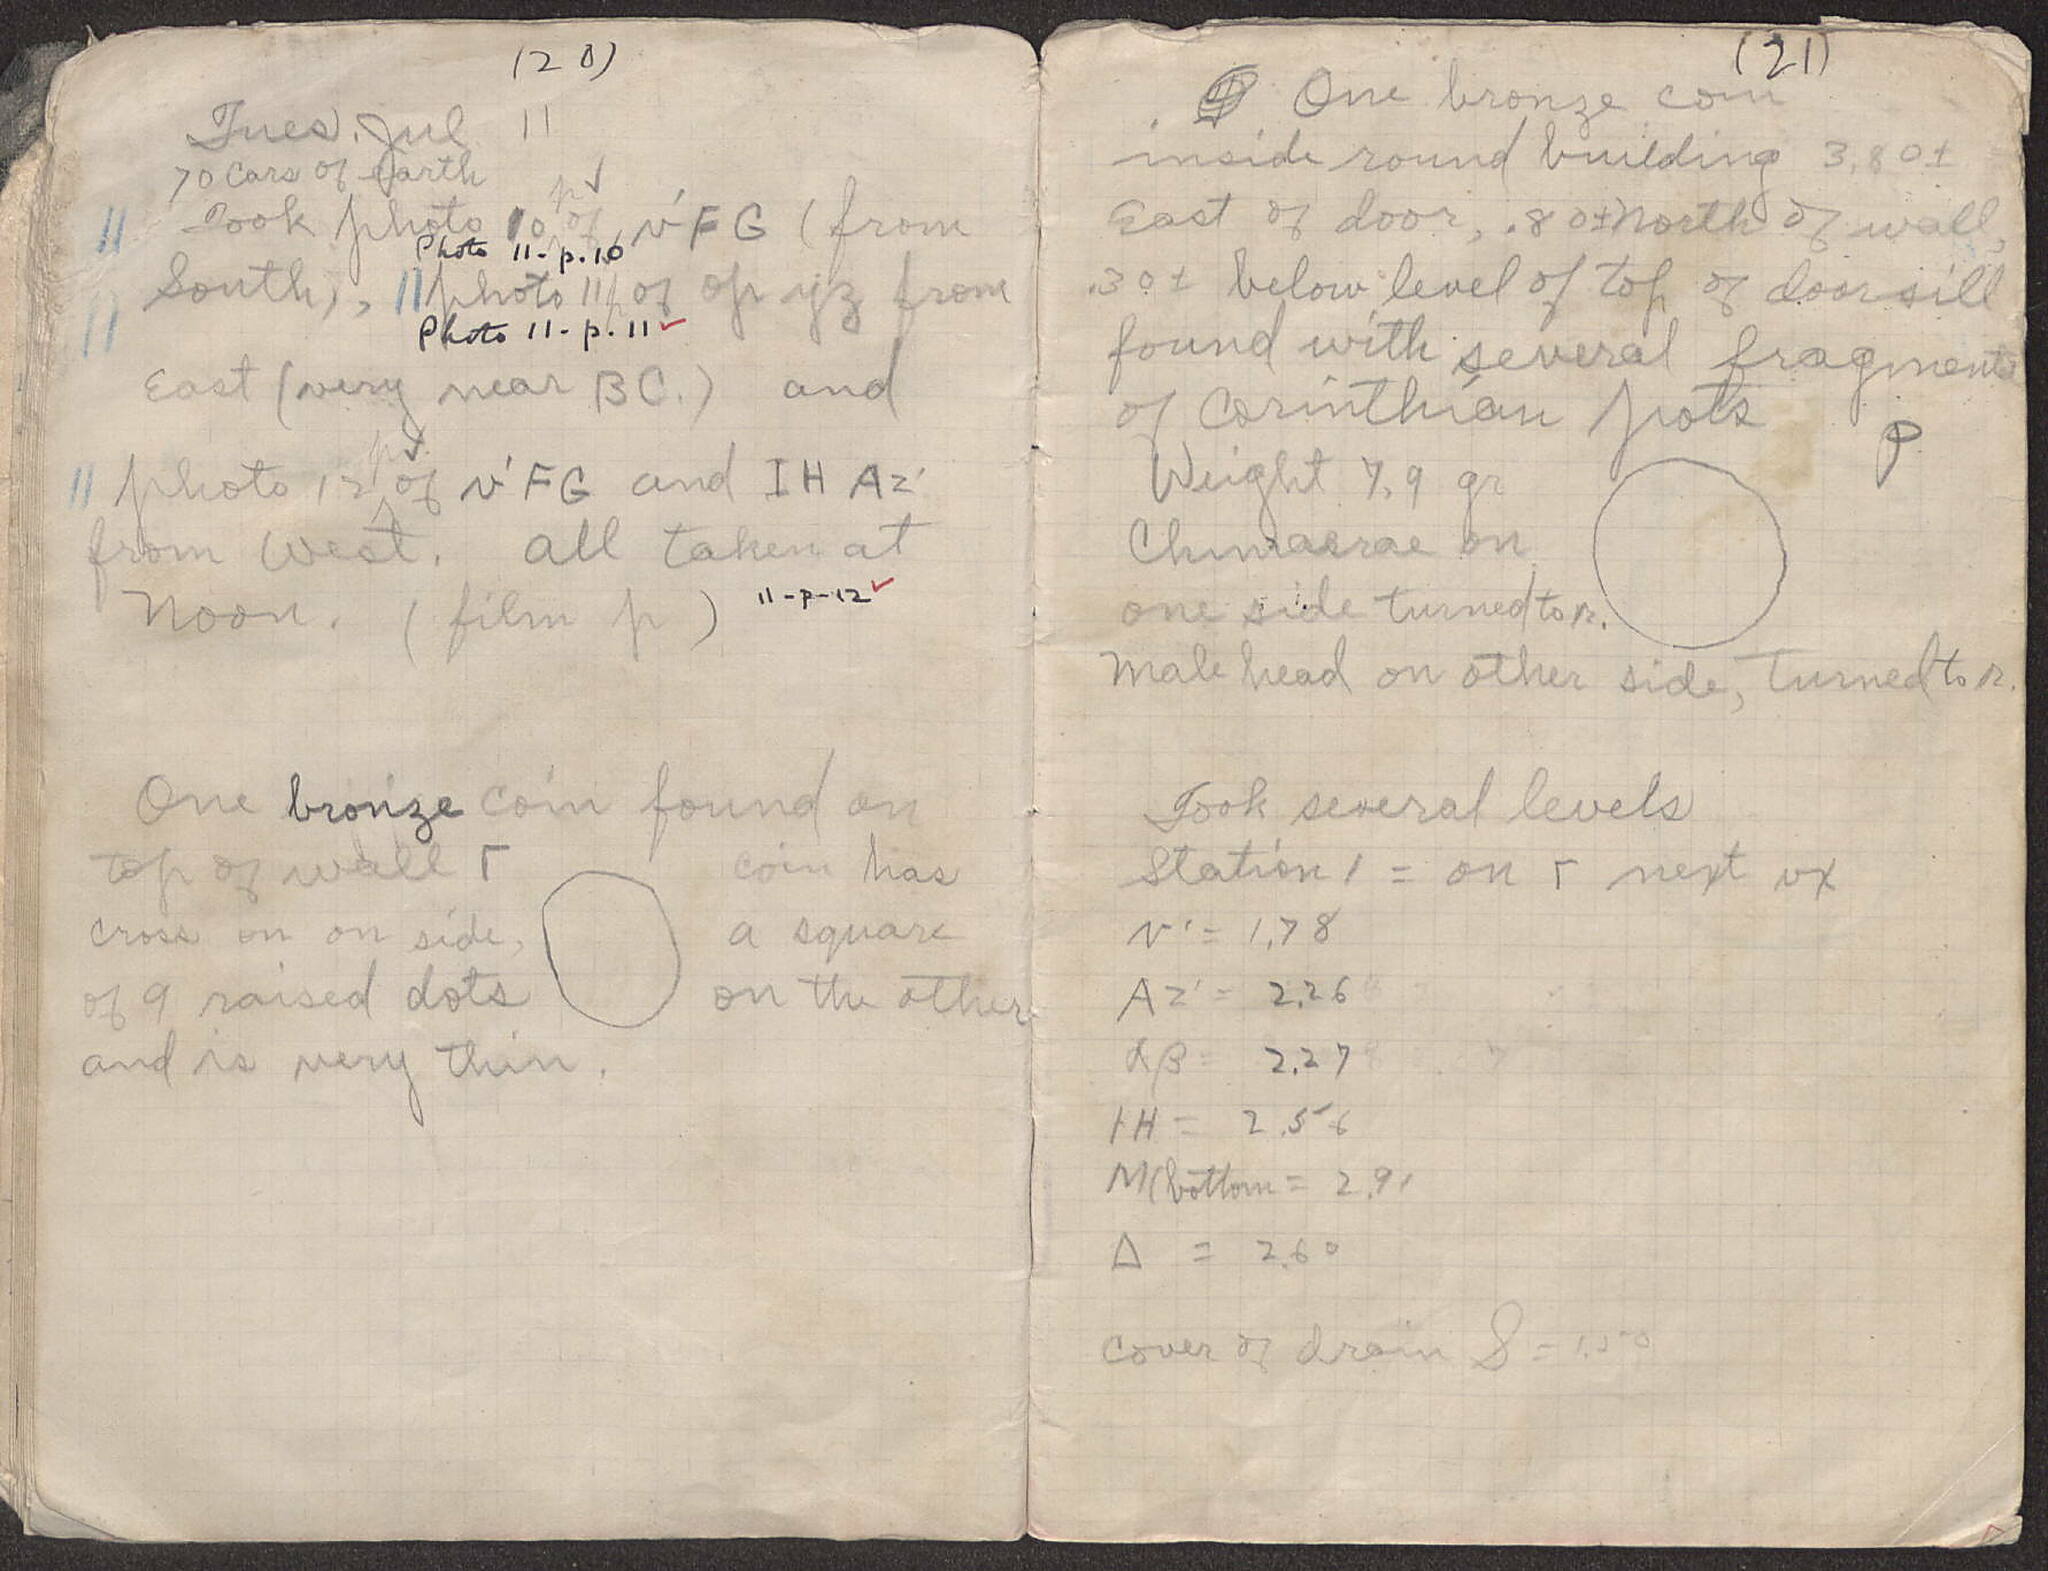 (20)
Tues. Jul 11
70 cars of earth
p ✓
11 Took photo 10 of ν'FG (from
Photo 11-p.10
South), 11 photo 11 p of op yz from
11
Photo 11-p.11 ✓
East (very near BC.) and
p ✓
11 photo 12 of ν'FG and IH AZ'
from West. all taken at
Noon. (film p) 11-p-12 ✓
One bronze coin found on
top of wall Γ coin has
cross on on side, a square
of 9 raised dots on the other
and is very thin.
(21)
One bronze coin
inside round building 3,80±
East of door, .80± North of wall,
.30± below level of top of doorsill
found with several fragments
of Corinthian pots
P
Weight 7,9 gr
Chimaerae on
one side turned to r.
Male head on other side, turned to r.
Took several levels
Station 1 = on Γ next vx
ν' = 1,78
AZ' = 2,26
αβ = 2,27
IH = 2.56
M(bottom = 2,91
Δ = 2.60
cover of drain S = 1.50